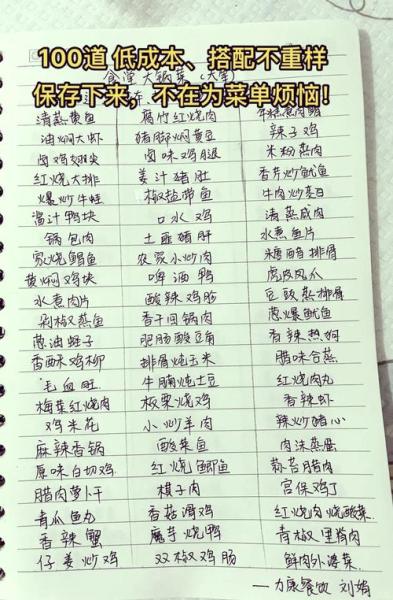 100道 低成本、搭配不重样
食堂大锅菜（大荤）
保存下来，不在为菜单烦恼！
清蒸黄鱼 腐竹红烧肉 年糕煮肉蟹
油焖大虾 猪脚焖黄豆 辣子鸡
卤鸡翅尖 卤味鸡腿 米粉蒸肉
红烧大排 姜汁猪肚 香芹炒鱿鱼
爆炒牛蛙 椒盐带鱼 牛肉炒茭白
酱汁鸭块 口水鸡 清蒸咸肉
锅包肉 土匪猪肝 水煮鱼片
家烧鲳鱼 农家小炒肉 糖醋排骨
黄焖鸡块 啤酒鸭 虎皮凤爪
水煮肉片 酸辣鸡胗 豆豉蒸排骨
剁椒蒸鱼 香干回锅肉 葱爆鱿鱼
葱油蛏子 肥肠酸豆角 香辣热狗
香酥鸡柳 排骨炖玉米 腊味合蒸
毛血旺 牛腩炖土豆 红烧肉丸
梅菜红烧肉 板栗烧鸡 香辣虾
鸡米花 小炒羊肉 辣炒猪心
麻辣香锅 酸菜鱼 肉沫蒸蛋
原味白切鸡 红烧鲫鱼 蒜苔腊肉
腊肉萝卜干 棋子肉 宫保鸡丁
青瓜鱼丸 香菇滑鸡 红烧肉烧酸菜
香辣蟹 魔芋烧鸭 青椒里脊肉
仔姜炒鸡 双椒鸡肠 鲜肉外婆菜
——力康餐饮 刘娟